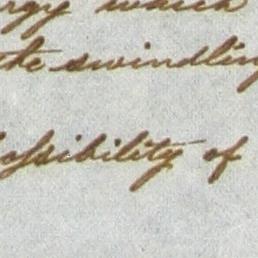 rgy which
the swindling
ossibility of